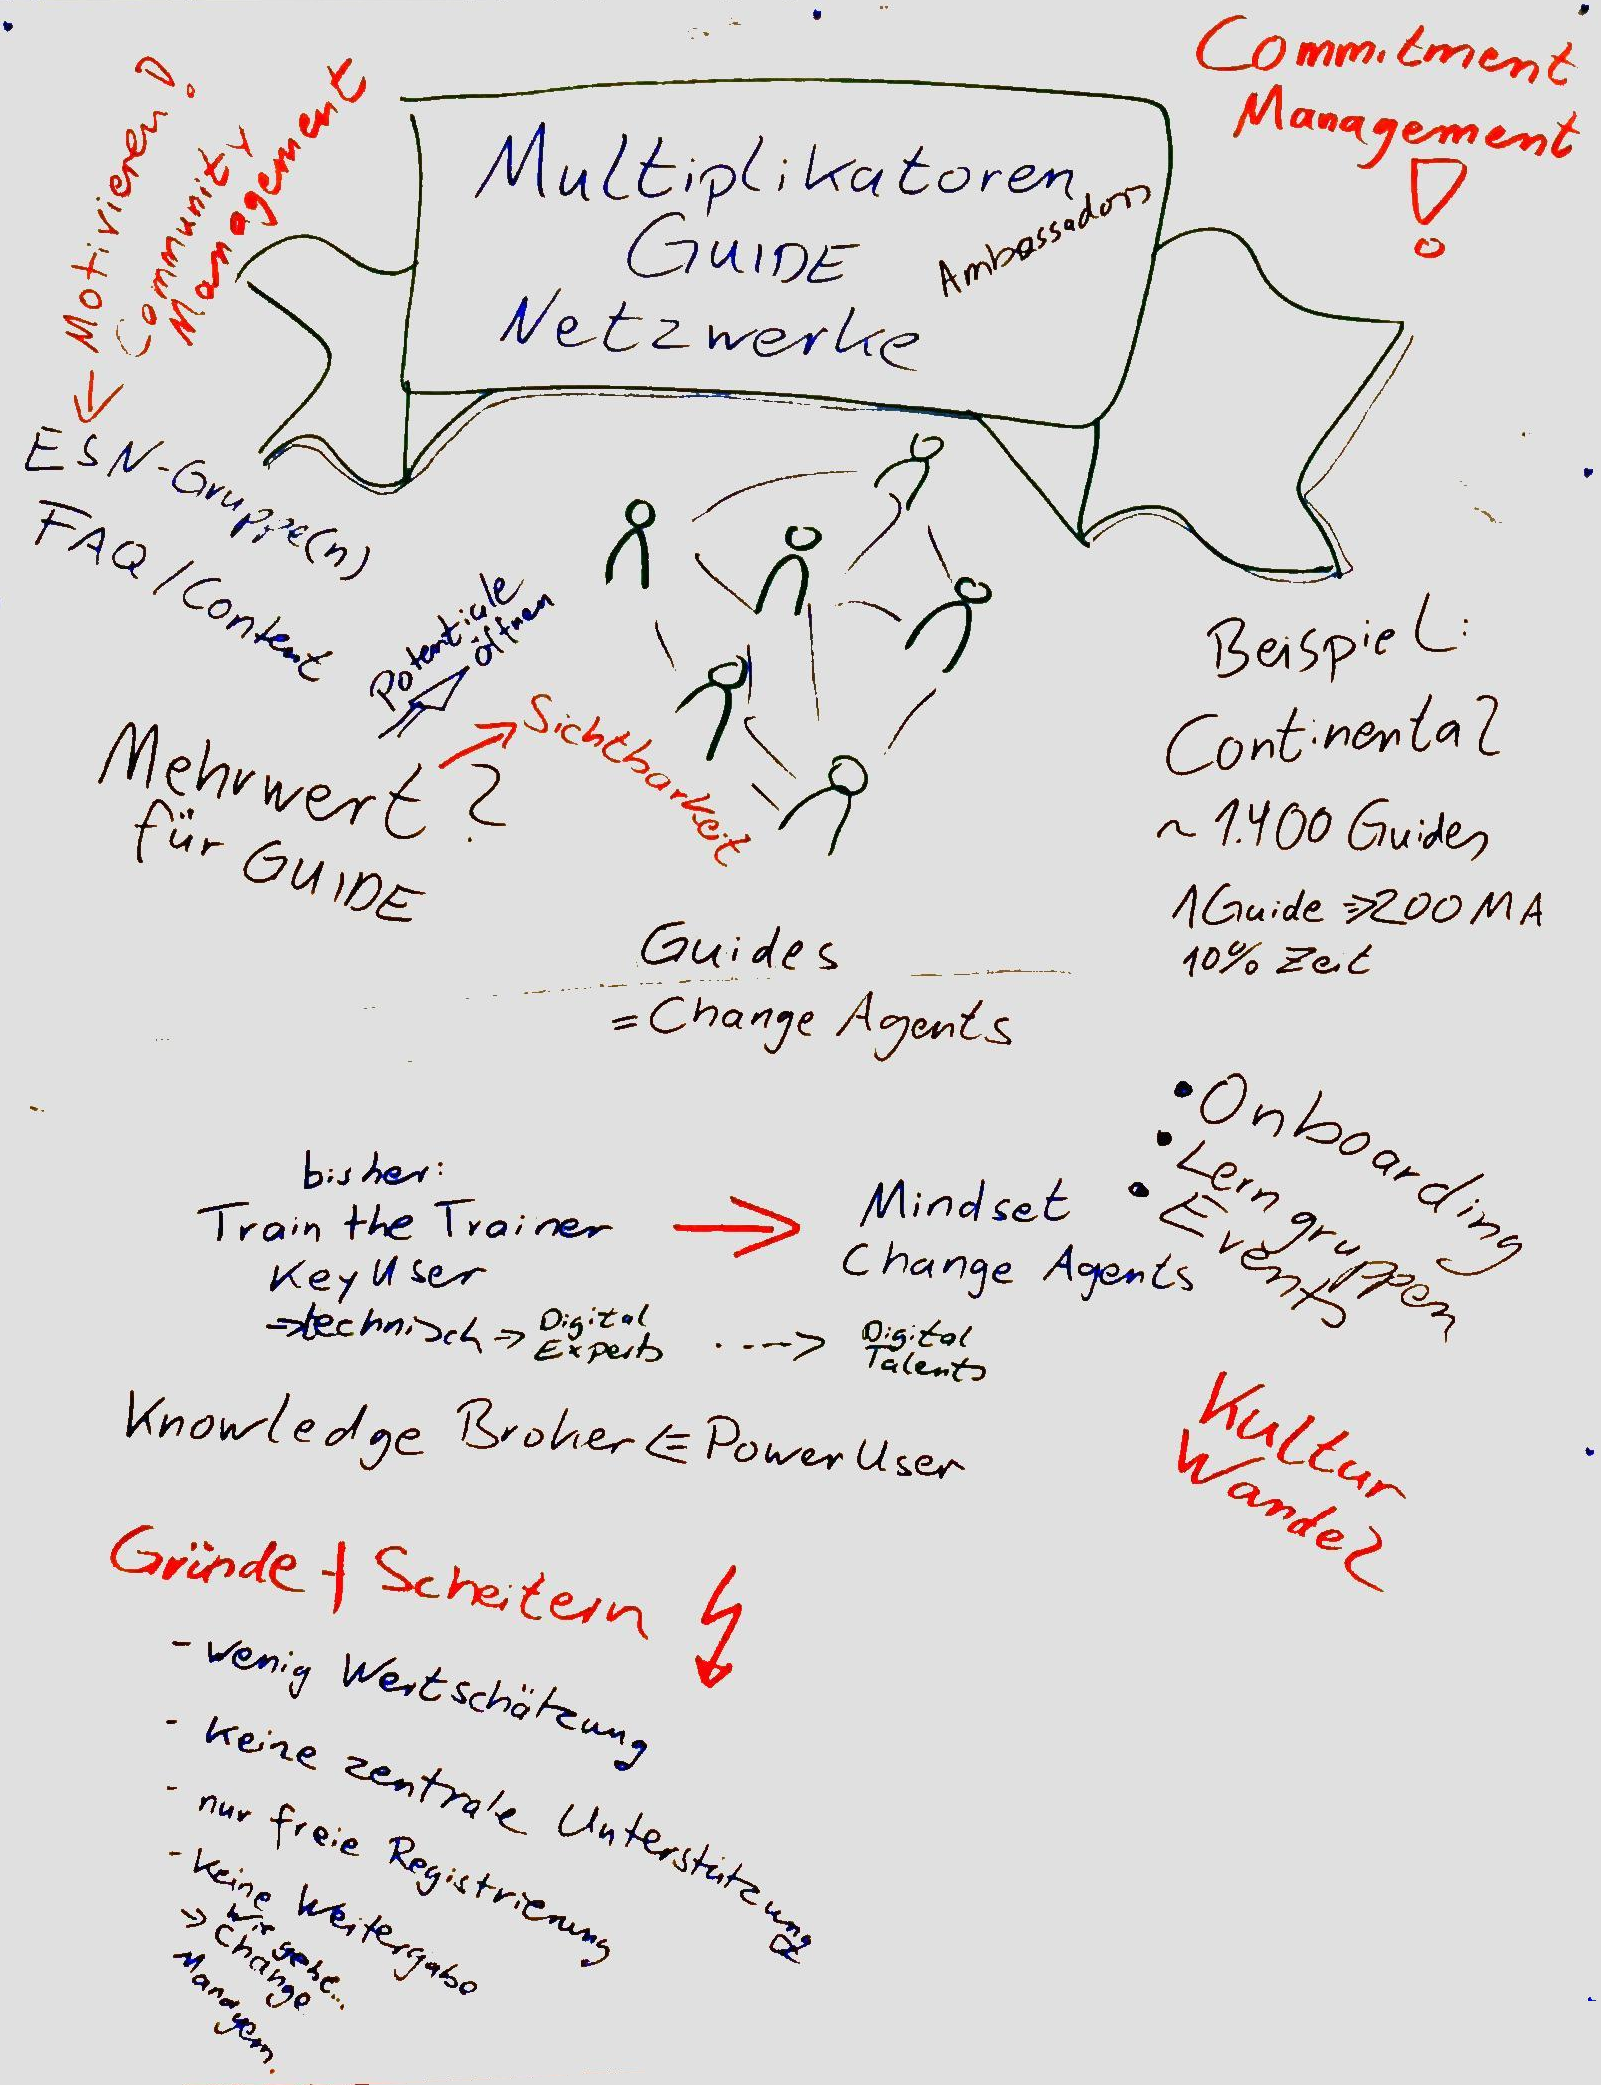 Commitment
Management
!
Motivieren?
Community
Management
Multiplikatoren
GUIDE
Netzwerke
Ambassadors
ESN-Gruppe(n)
FAQ / Content
Potentiale
öffnen
Sichtbarkeit
Mehrwert?
für GUIDE
Beispiel:
Continental
~ 1.400 Guides
1 Guide => 200 MA
10% Zeit
Guides
= Change Agents
• Onboarding
• Lerngruppen
• Events
bisher:
Train the Trainer
Key User
=> technisch => Digital
Experts
----> Digital
Talents
→ Mindset
Change Agents
Knowledge Broker <= Power User
Kultur
Wandel
Gründe f Scheitern
- wenig Wertschätzung
- Keine zentrale Unterstützung
- nur freie Registrierung
- Keine Weitergabe
=> Wie gehe...
Change
Managem.